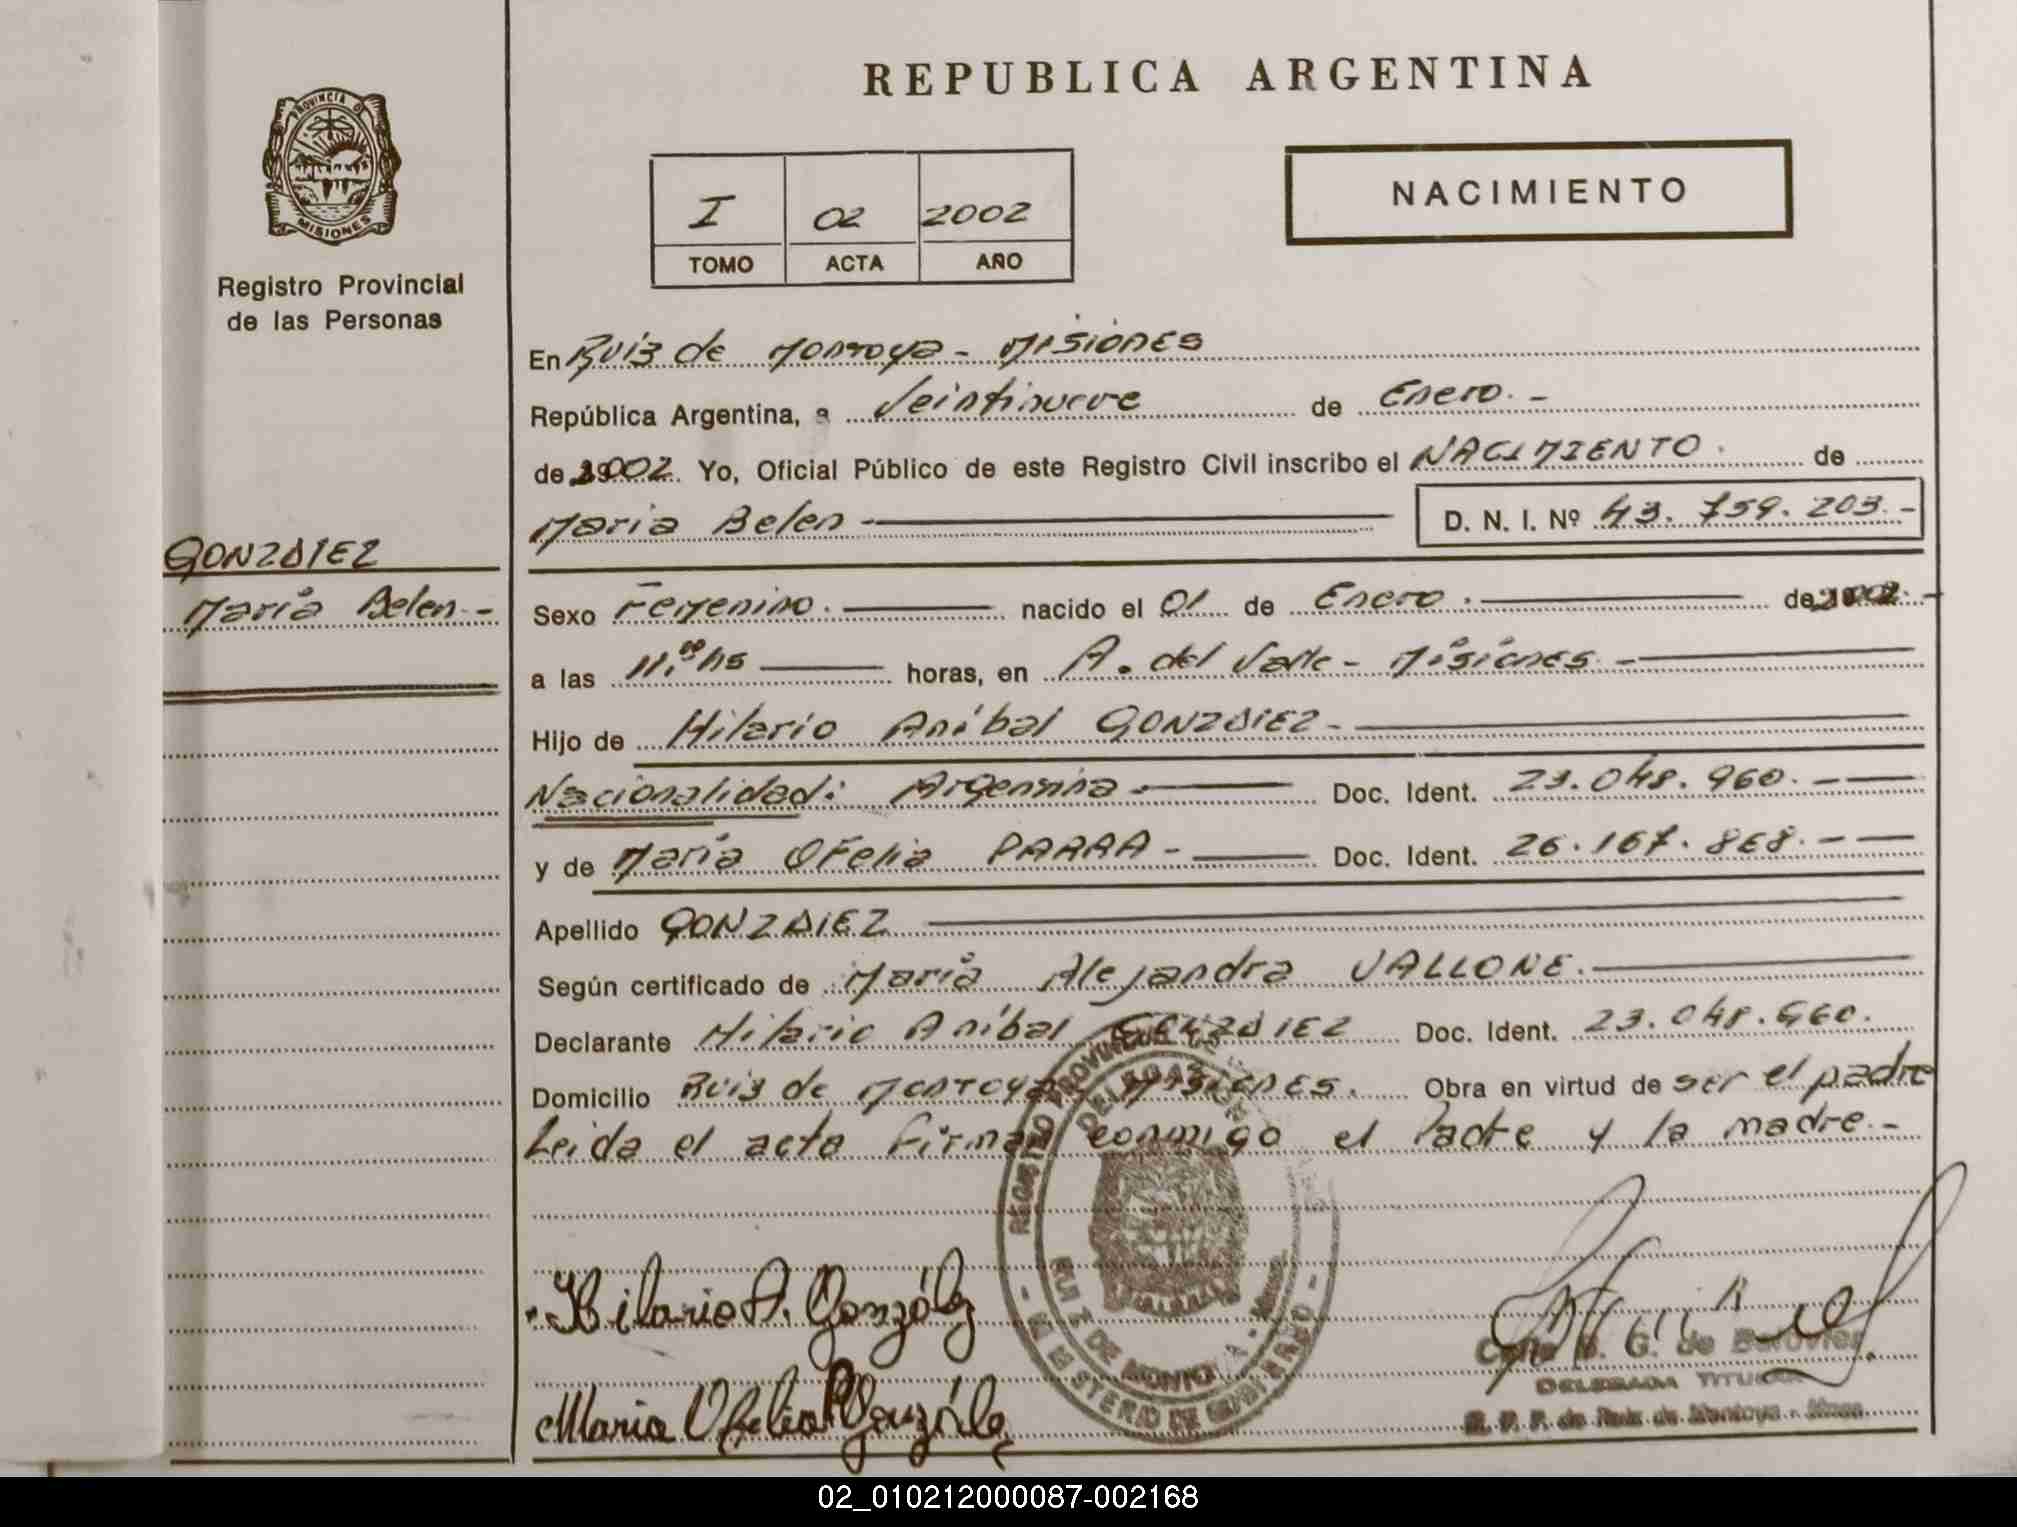 PROVINCIA D
MISIONES
Registro Provincial
de las Personas
GONZALEZ
María Belen.-
REPUBLICA ARGENTINA
NACIMIENTO
I 02 2002
TOMO ACTA AÑO
En Ruiz de Montoya - Misiones
República Argentina, a Veintinueve de Enero.-
de 2002. Yo, Oficial Público de este Registro Civil inscribo el NACIMIENTO. de
Maria Belen
D. N. I. Nº 43.759.203.-
Sexo Femenino. nacido el 01 de Enero. de 2002.-
a las 11:00 hs horas, en A. del Valle - Misiones.-
Hijo de Hilario Aníbal GONZALEZ-
Nacionalidad: Argentina.- Doc. Ident. 23.048.960.-
y de María Ofelia PARRA- Doc. Ident. 26.167.868.-
Apellido GONZALEZ
Según certificado de María Alejandra VALLONE.
Declarante Hilario Aníbal GONZALEZ Doc. Ident. 23.048.960.
Domicilio Ruiz de Montoya Misiones. Obra en virtud de ser el padre
Leida el acta firman conmigo el Padre y la madre.-
REGISTRO PROVINCIAL
DELEGA
RUIZ DE MONTOYA - Mnes.
MINISTERIO DE GOBIERNO
Hilario A. González
Maria Ofelia P. González
G. de
DELEGADA TITULAR
R. P. P. de Ruiz de Montoya - Mnes.
02_010212000087-002168